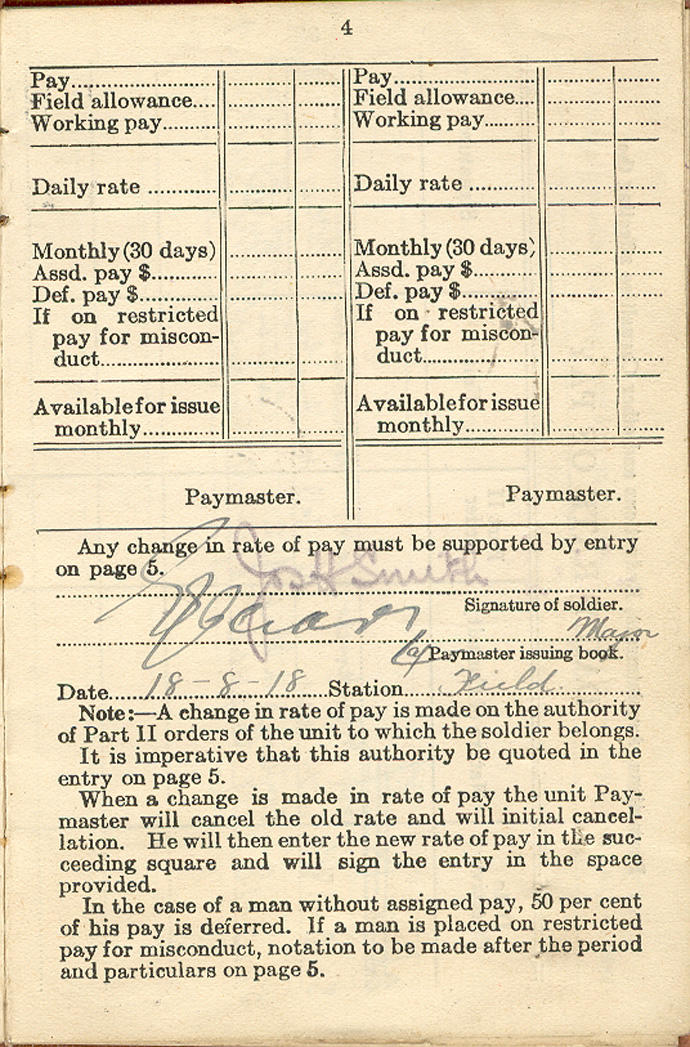 4
Pay.......... Pay..........
Field allowance.... Field allowance....
Working pay......... Working pay.........
Daily rate ............ Daily rate ............
Monthly (30 days) Monthly (30 days)
Assd. pay $.......... Assd. pay $..........
Def. pay $........... Def. pay $...........
If on restricted If on restricted
pay for miscon- pay for miscon-
duct.................. duct..................
Available for issue Available for issue
monthly............. monthly.............
Paymaster. Paymaster.
Any change in rate of pay must be supported by entry
on page 5.
Jos H Smith
Signature of soldier.
Major
Paymaster issuing book.
Date 18-8-18 Station Field
Note:—A change in rate of pay is made on the authority
of Part II orders of the unit to which the soldier belongs.
It is imperative that this authority be quoted in the
entry on page 5.
When a change is made in rate of pay the unit Pay-
master will cancel the old rate and will initial cancel-
lation. He will then enter the new rate of pay in the suc-
ceeding square and will sign the entry in the space
provided.
In the case of a man without assigned pay, 50 per cent
of his pay is deferred. If a man is placed on restricted
pay for misconduct, notation to be made after the period
and particulars on page 5.